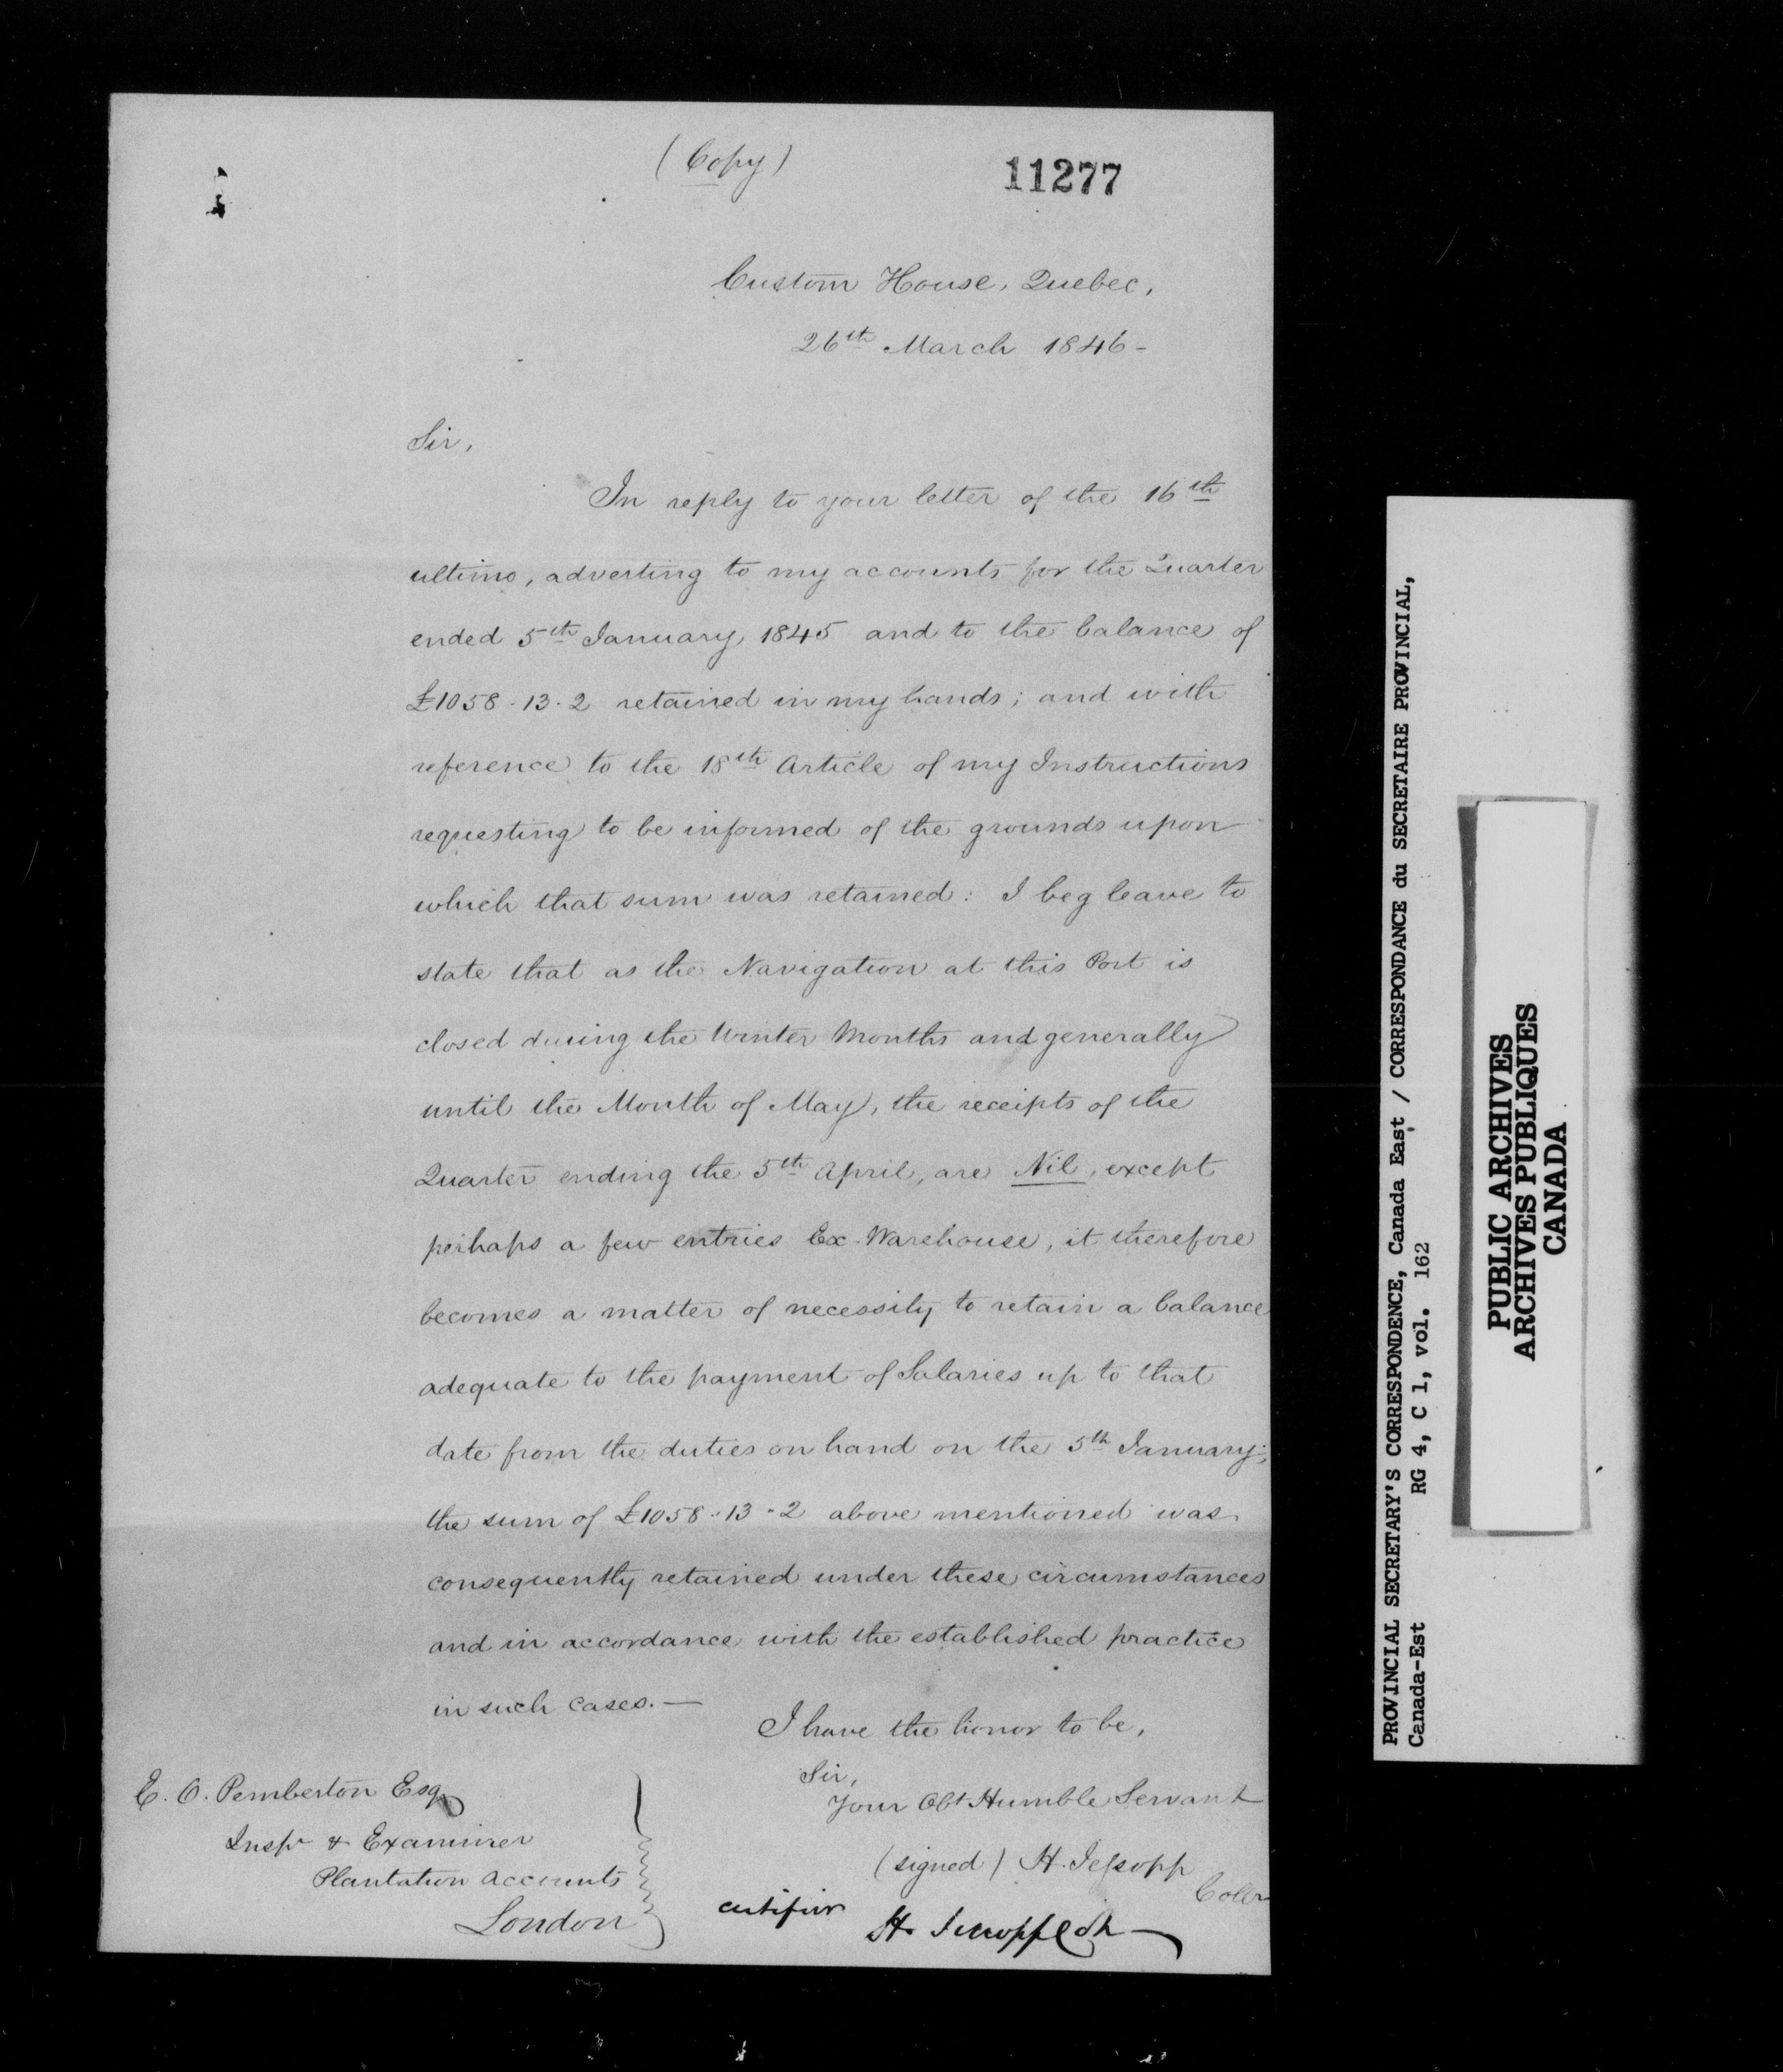 (Copy)
11277
Custom House, Quebec,
26th March 1846-
Sir,
In reply to your letter of the 16th
ultimo, adverting to my accounts for the Quarter
ended 5th January 1845 and to the balance of
£1058.13.2 retained in my hands; and with
reference to the 18th Article of my Instructions
requesting to be informed of the grounds upon
which that sum was retained: I beg leave to
state that as the Navigation at this Port is
closed during the Winter Months and generally
until the Month of May, the receipts of the
Quarter ending the 5th April, are Nil, except
perhaps a few entries Ex-Warehouse, it therefore
becomes a matter of necessity to retain a balance
adequate to the payment of Salaries up to that
date from the duties on hand on the 5th January;
the sum of £1058.13.2 above mentioned was
consequently retained under these circumstances
and in accordance with the established practice
in such cases.—
I have the honor to be,
Sir,
Your Obt Humble Servant
(signed) H. Jessopp
Collr
E. O. Pemberton Esqr
Inspr & Examiner
Plantation Accounts
London
H. Jessopp
PROVINCIAL SECRETARY'S CORRESPONDENCE, Canada East / CORRESPONDANCE du SECRETAIRE PROVINCIAL,
Canada-Est RG 4, C 1, vol. 162
PUBLIC ARCHIVES
ARCHIVES PUBLIQUES
CANADA